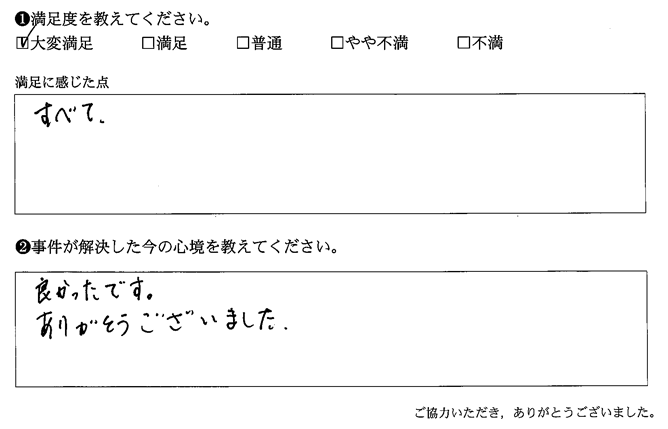 ❶満足度を教えてください。
☑大変満足 □満足 □普通 □やや不満 □不満
満足に感じた点
すべて.
❷事件が解決した今の心境を教えてください。
良かったです。
ありがとうございました.
ご協力いただき，ありがとうございました。